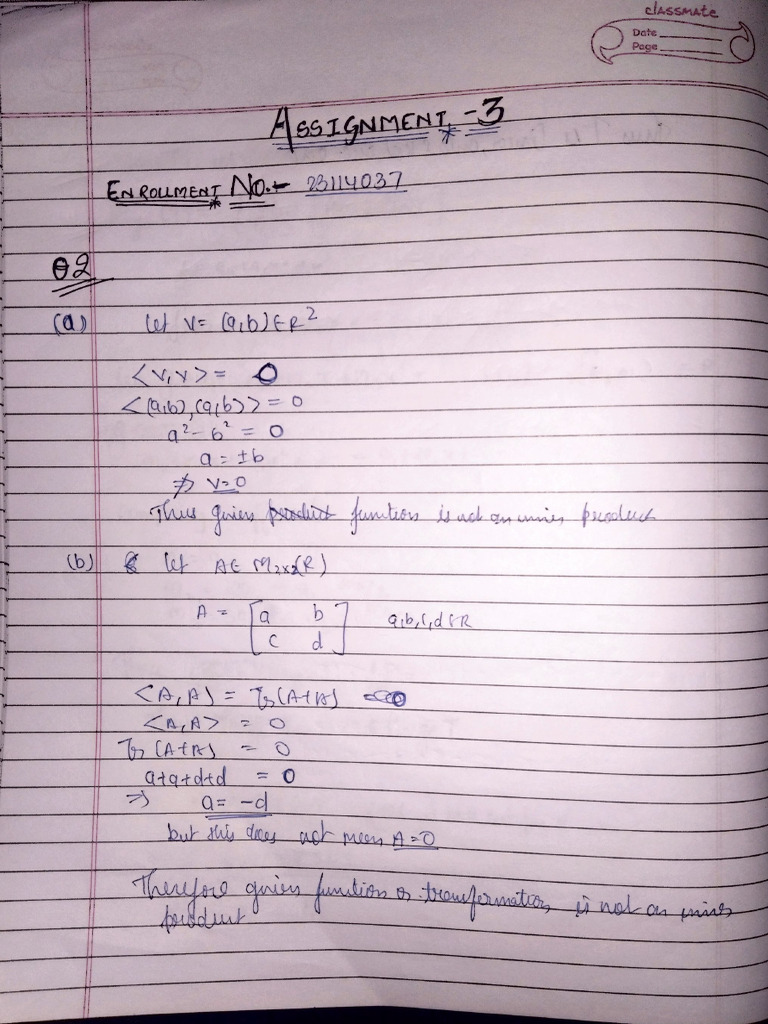 classmate
Date
Page
ASSIGNMENT - 3
ENROLLMENT No.:- 23114037
Q2
(a) Let V= (a,b) ∈ R²
<V,V> = 0
<(a,b),(a,b)> = 0
a² - b² = 0
a = ±b
⇏ V=0
Thus given function is not an inner product
(b) Let A ∈ M₂ₓ₂(R)
A = [a b
c d] a,b,c,d ∈ R
<A,A> = Tr(A+A)
<A,A> = 0
Tr(A+A) = 0
a+a+d+d = 0
⇒ a = -d
but this does not mean A=0
Therefore given function or transformation is not an inner
product